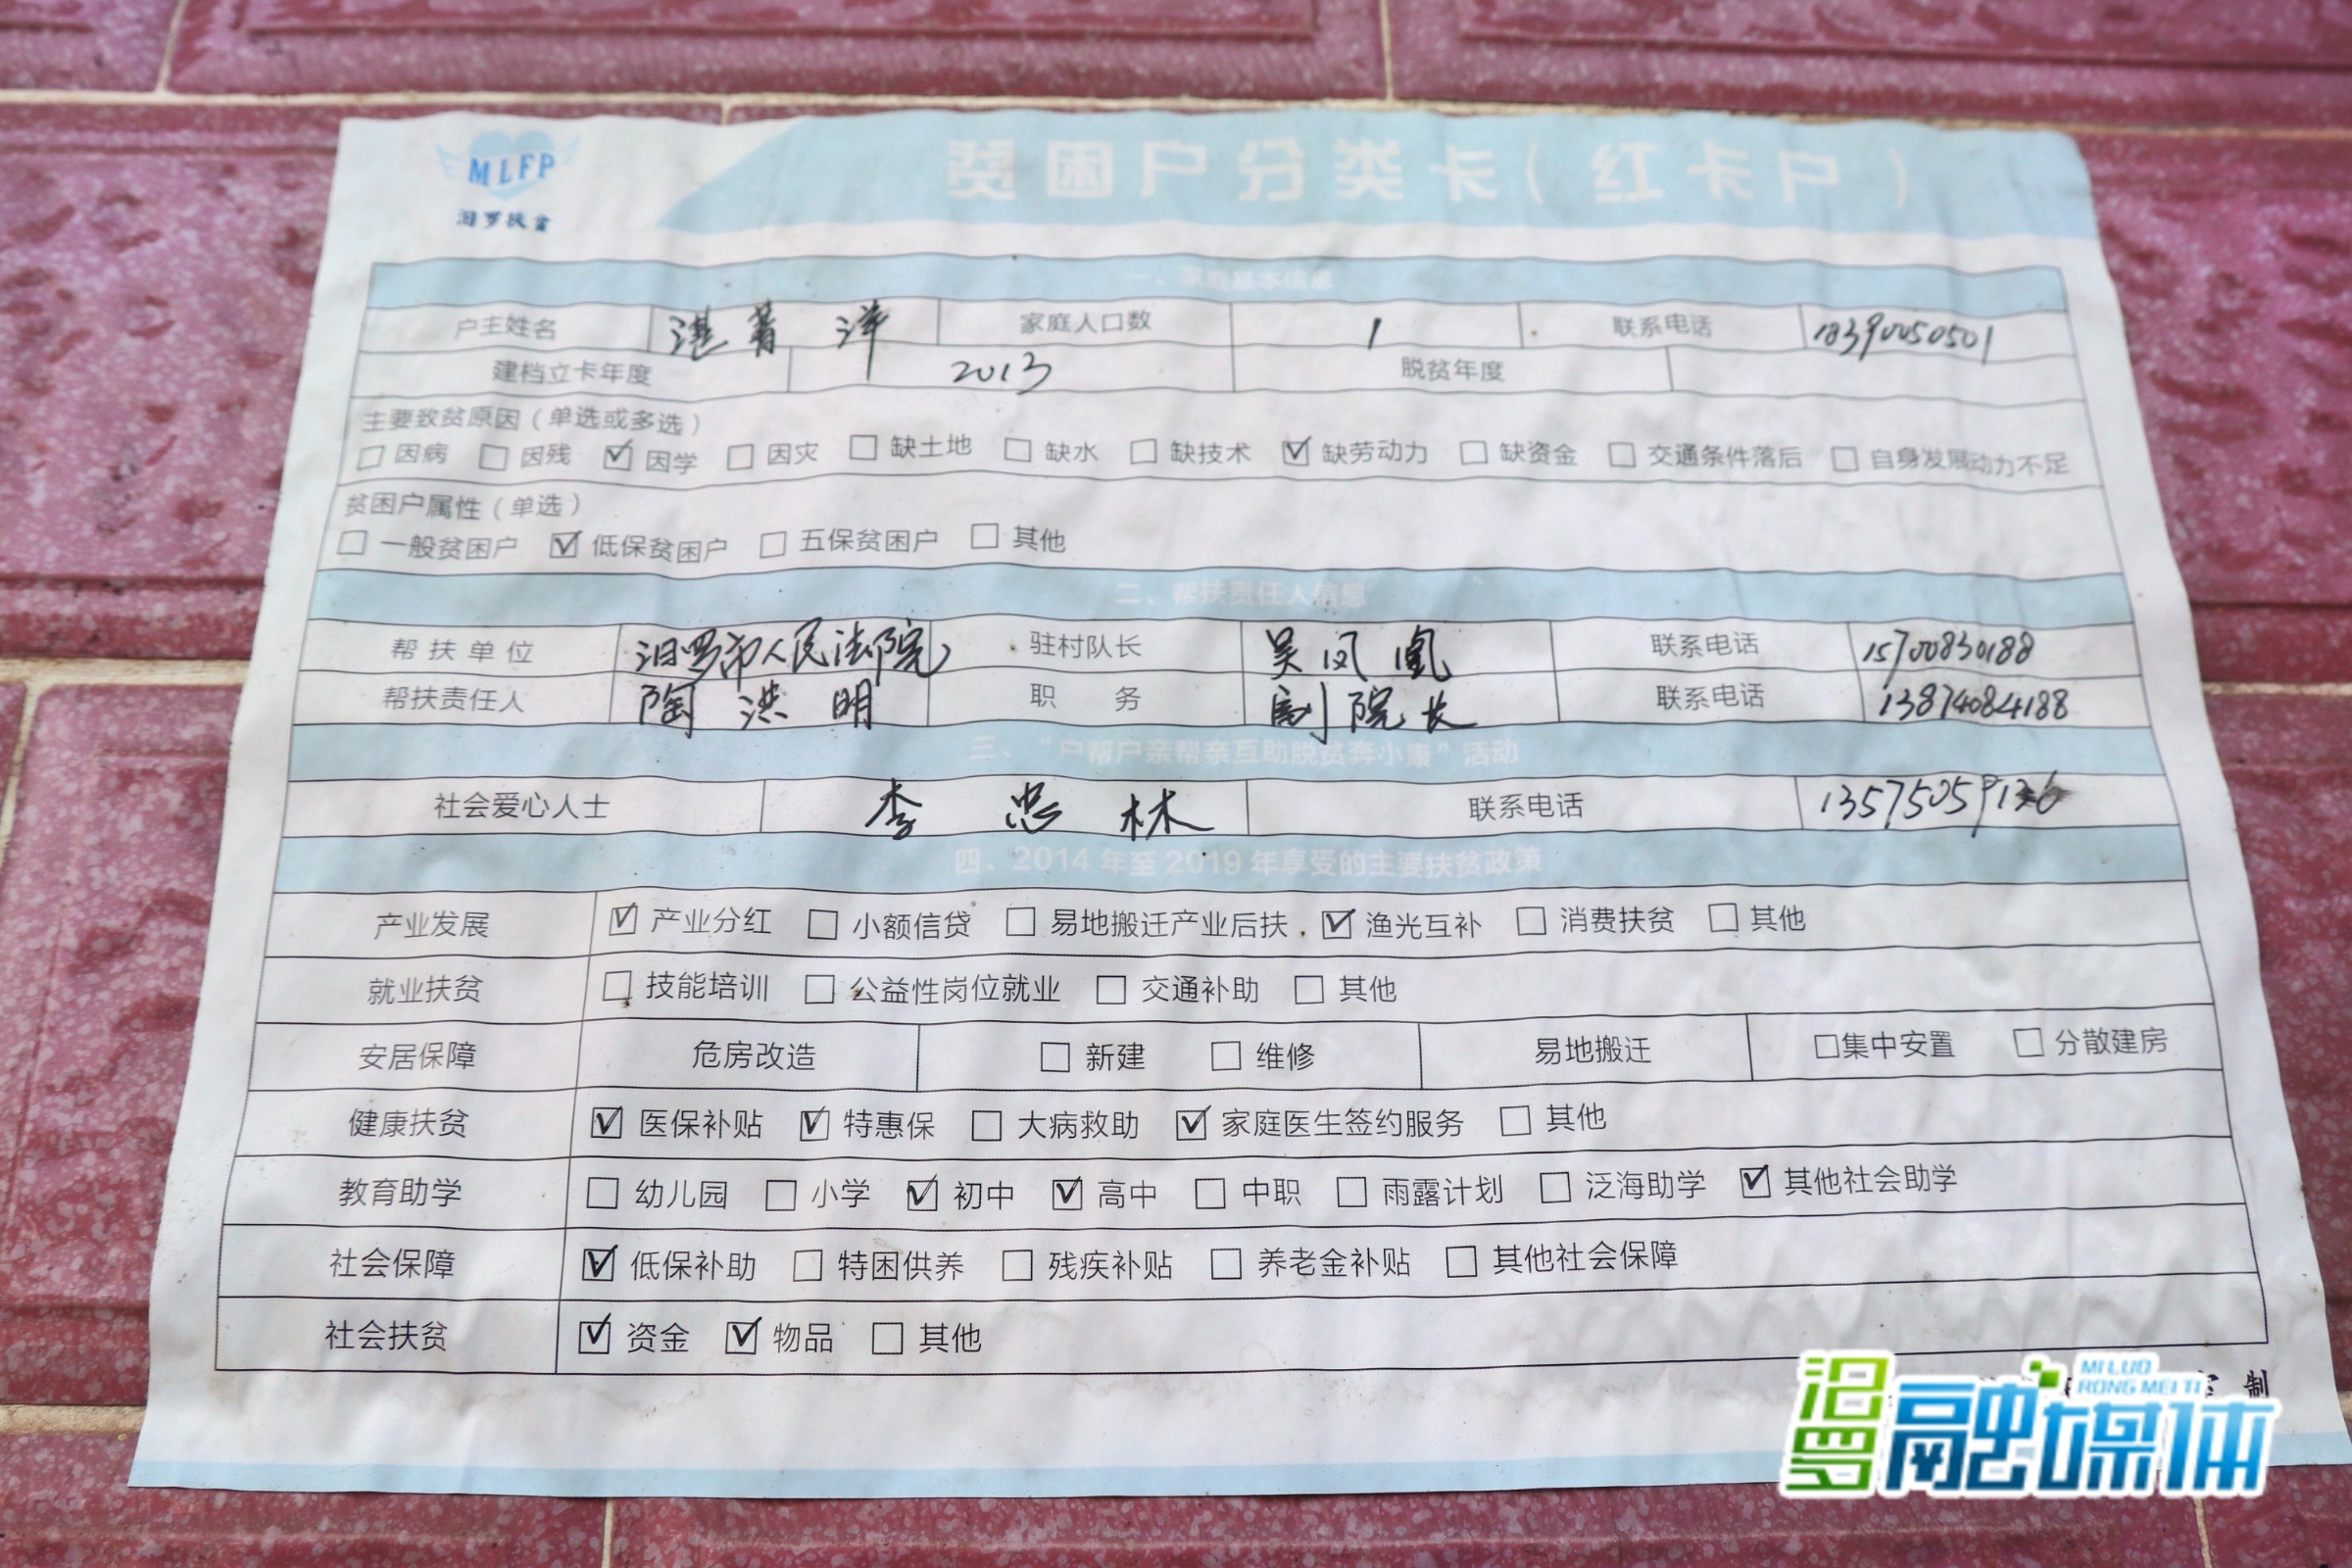 MLFP
汨罗扶贫
贫困户分类卡(红卡户)
一、家庭基本信息
户主姓名 湛菁洋 家庭人口数 1 联系电话 18390050501
建档立卡年度 2013 脱贫年度
主要致贫原因(单选或多选)
□因病 □因残 ☑因学 □因灾 □缺土地 □缺水 □缺技术 ☑缺劳动力 □缺资金 □交通条件落后 □自身发展动力不足
贫困户属性(单选)
□一般贫困户 ☑低保贫困户 □五保贫困户 □其他
二、帮扶责任人信息
帮扶单位 汨罗市人民法院 驻村队长 吴凤凰 联系电话 15700830188
帮扶责任人 陶洪明 职务 副院长 联系电话 13874084188
三、“户帮户亲帮亲互助脱贫奔小康”活动
社会爱心人士 李忠林 联系电话 13575059136
四、2014年至2019年享受的主要扶贫政策
产业发展 ☑产业分红 □小额信贷 □易地搬迁产业后扶 ☑渔光互补 □消费扶贫 □其他
就业扶贫 □技能培训 □公益性岗位就业 □交通补助 □其他
安居保障 危房改造 □新建 □维修 易地搬迁 □集中安置 □分散建房
健康扶贫 ☑医保补贴 ☑特惠保 □大病救助 ☑家庭医生签约服务 □其他
教育助学 □幼儿园 □小学 ☑初中 ☑高中 □中职 □雨露计划 □泛海助学 ☑其他社会助学
社会保障 ☑低保补助 □特困供养 □残疾补贴 □养老金补贴 □其他社会保障
社会扶贫 ☑资金 ☑物品 □其他
制
汨罗融媒体
MI LUO
RONG MEI TI